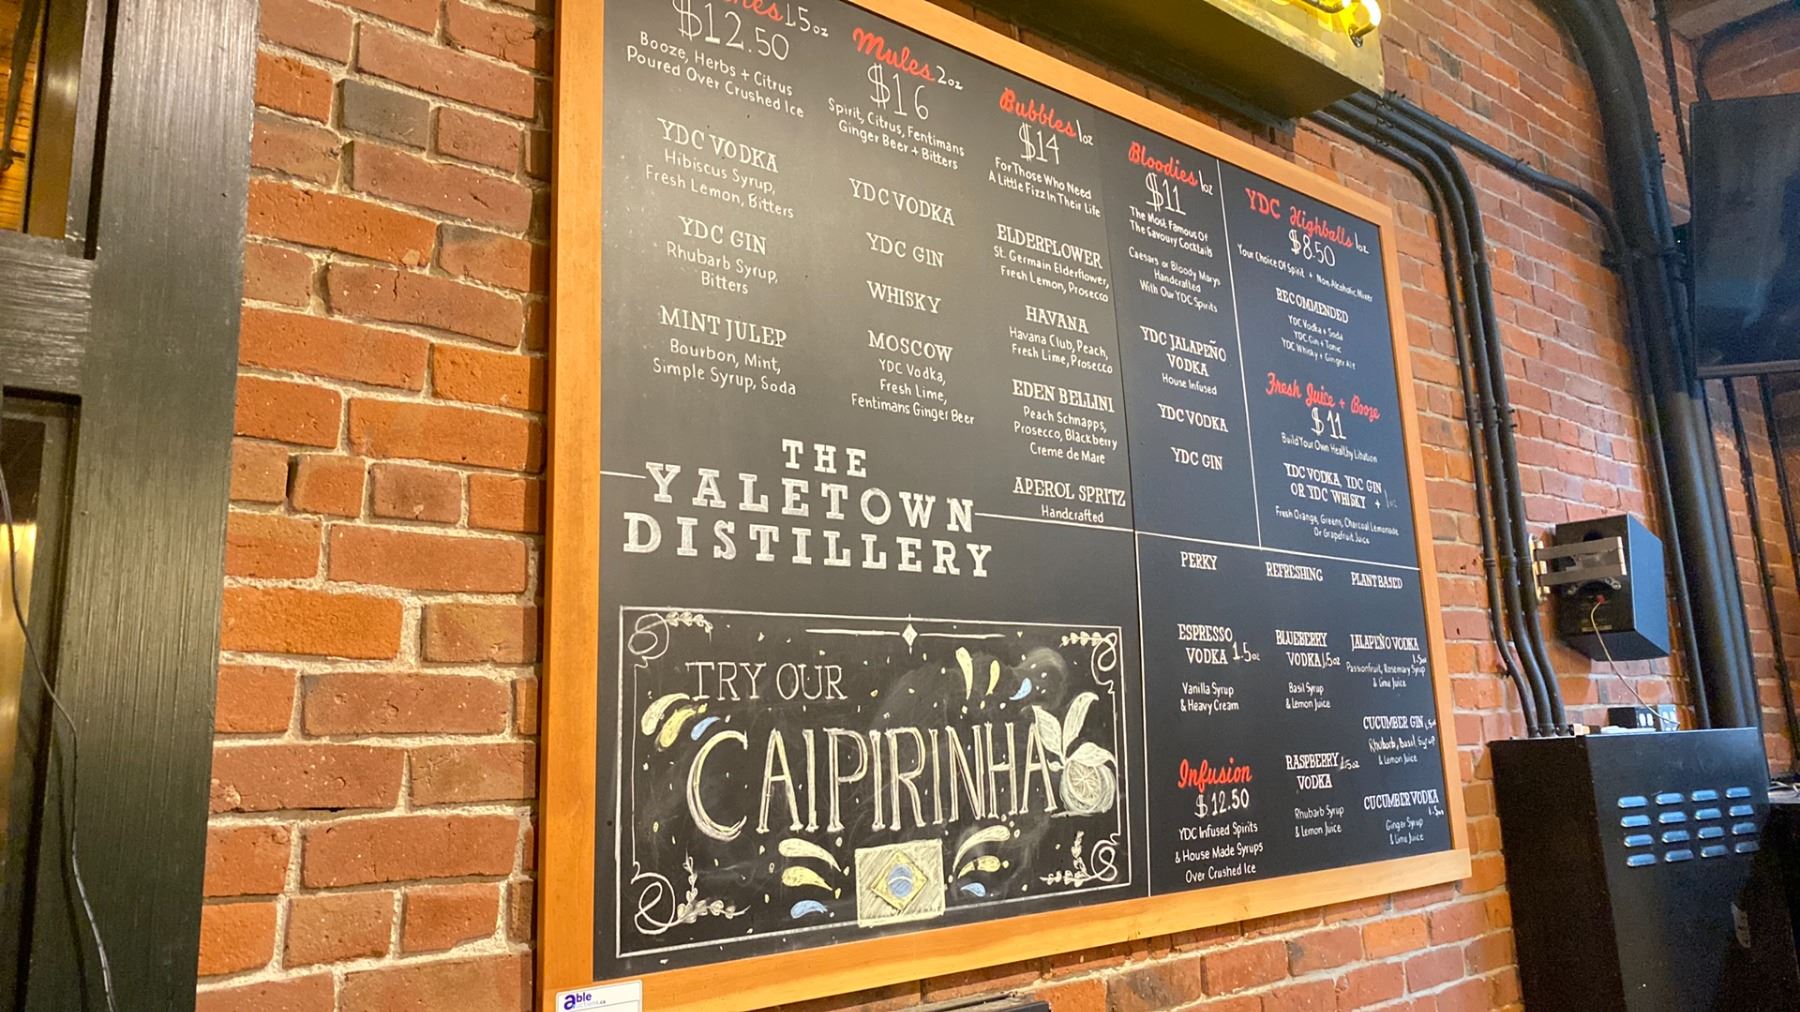 1.5oz
$12.50
Booze, Herbs + Citrus
Poured Over Crushed Ice
YDC VODKA
Hibiscus Syrup,
Fresh Lemon, Bitters
YDC GIN
Rhubarb Syrup,
Bitters
MINT JULEP
Bourbon, Mint,
Simple Syrup, Soda
Mules 2oz
$16
Spirit, Citrus, Fentimans
Ginger Beer + Bitters
YDC VODKA
YDC GIN
WHISKY
MOSCOW
YDC Vodka,
Fresh Lime,
Fentimans Ginger Beer
Bubbles 1oz
$14
For Those Who Need
A Little Fizz In Their Life
ELDERFLOWER
St. Germain Elderflower,
Fresh Lemon, Prosecco
HAVANA
Havana Club, Peach,
Fresh Lime, Prosecco
EDEN BELLINI
Peach Schnapps,
Prosecco, Blackberry
Creme de Mare
APEROL SPRITZ
Handcrafted
Bloodies 1oz
$11
The Most Famous Of
The Savoury Cocktails
Caesars or Bloody Marys
Handcrafted
With Our YDC Spirits
YDC JALAPEÑO
VODKA
House Infused
YDC VODKA
YDC GIN
YDC Highballs 1oz
$8.50
Your Choice Of Spirit + Non Alcoholic Mixer
RECOMMENDED
YDC Vodka + Soda
YDC Gin + Tonic
YDC Whisky + Ginger Ale
Fresh Juice + Booze
$11
Build Your Own Healthy Libation
YDC VODKA, YDC GIN
OR YDC WHISKY + 1oz
Fresh Orange, Greens, Charcoal Lemonade
Or Grapefruit Juice
THE
YALETOWN
DISTILLERY
TRY OUR
CAIPIRINHA
PERKY
ESPRESSO
VODKA 1.5oz
Vanilla Syrup
& Heavy Cream
Infusion
$12.50
YDC Infused Spirits
& House Made Syrups
Over Crushed Ice
REFRESHING
BLUEBERRY
VODKA 1.5oz
Basil Syrup
& Lemon Juice
RASPBERRY 1.5oz
VODKA
Rhubarb Syrup
& Lemon Juice
PLANT BASED
JALAPEÑO VODKA
1.5oz
Passionfruit, Rosemary Syrup
& Lime Juice
CUCUMBER GIN 1.5oz
Rhubarb, Basil Syrup
& Lemon Juice
CUCUMBER VODKA
1.5oz
Ginger Syrup
& Lime Juice
able